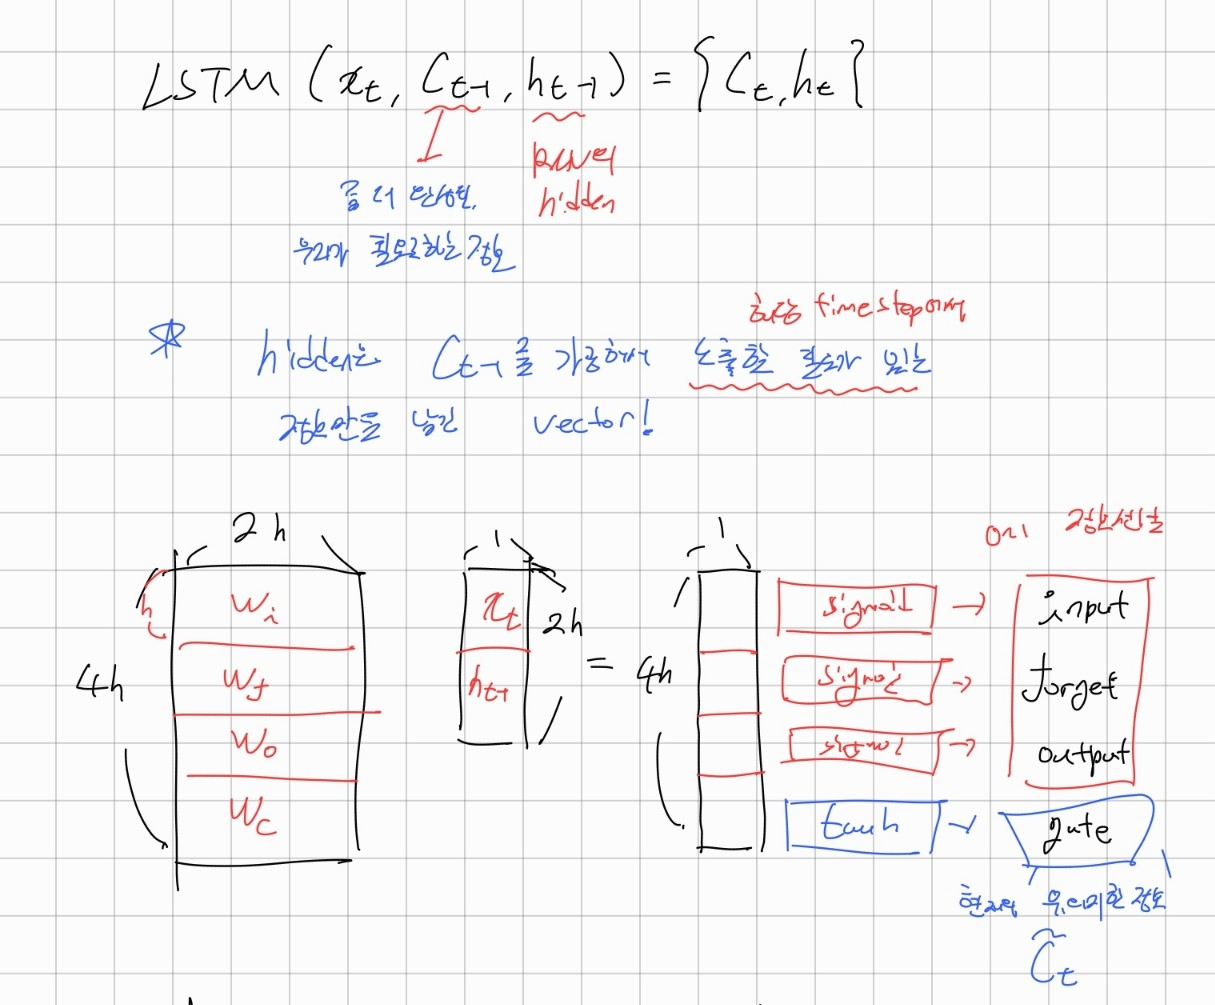 LSTM (xₜ, Cₜ₋₁, hₜ₋₁) = {Cₜ, hₜ}
RNN의
hidden
좀 더 완성된,
우리가 필요로하는 정보
해당 timestep에서
☆ hidden은 Cₜ₋₁를 가공해서 노출할 필요가 있는
정보만을 남긴 vector!
2h 1 1
0~1 정보선별
h Wi xₜ sigmoid → input
2h
4h Wf hₜ₋₁ = 4h sigmoid → forget
Wo sigmoid → output
Wc tanh → gate
현재의 유의미한 정보
C̃ₜ